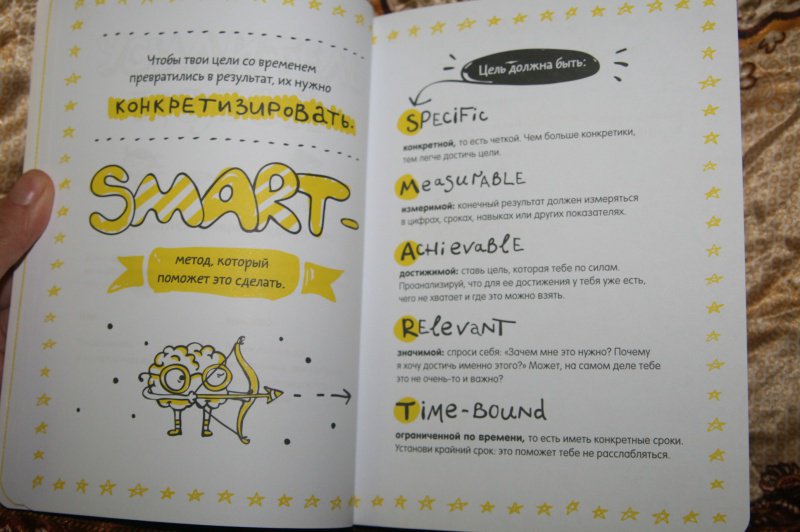 Чтобы твои цели со временем
превратились в результат, их нужно
КОНКРЕТИЗИРОВАТЬ.
SMART-
метод, который
поможет это сделать.
Цель должна быть:
SPECIFIC
конкретной, то есть четкой. Чем больше конкретики,
тем легче достичь цели.
MEASURABLE
измеримой: конечный результат должен измеряться
в цифрах, сроках, навыках или других показателях.
ACHIEVABLE
достижимой: ставь цель, которая тебе по силам.
Проанализируй, что для ее достижения у тебя уже есть,
чего не хватает и где это можно взять.
RELEVANT
значимой: спроси себя: «Зачем мне это нужно? Почему
я хочу достичь именно этого?» Может, на самом деле тебе
это не очень-то и важно?
TIME-BOUND
ограниченной по времени, то есть иметь конкретные сроки.
Установи крайний срок: это поможет тебе не расслабляться.